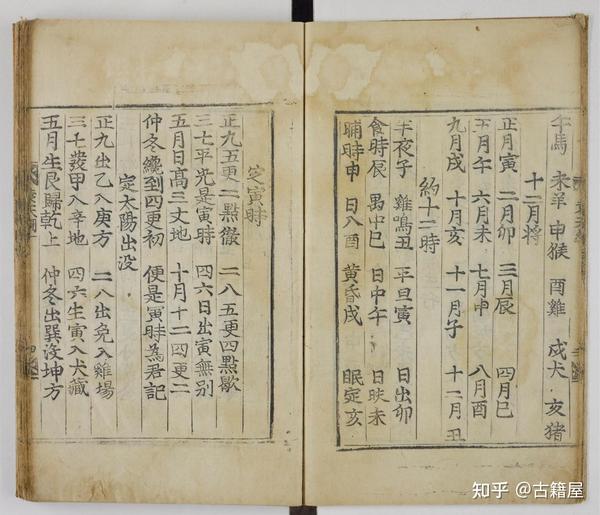 午馬 未羊 申猴 酉雞 戌犬 亥猪
十二月将
正月寅 二月卯 三月辰 四月巳
五月午 六月未 七月申 八月酉
九月戌 十月亥 十一月子 十二月丑
約十二時
半夜子 雞鳴丑 平旦寅 日出卯
食時辰 禺中巳 日中午 日昳未
晡時申 日入酉 黄昏戌 眠定亥
定寅時
正九五更二點徹 二八五更四點歇
三七平光是寅時 四六日出寅無别
五月日髙三丈地 十月十二四更二
仲冬纔到四更初 便是寅時為君記
定太陽出没
正九出乙入庚方 二八出兔入雞場
三七發甲入辛地 四六生寅入犬藏
五月生艮歸乾上 仲冬出巽没坤方
知乎 @古籍屋